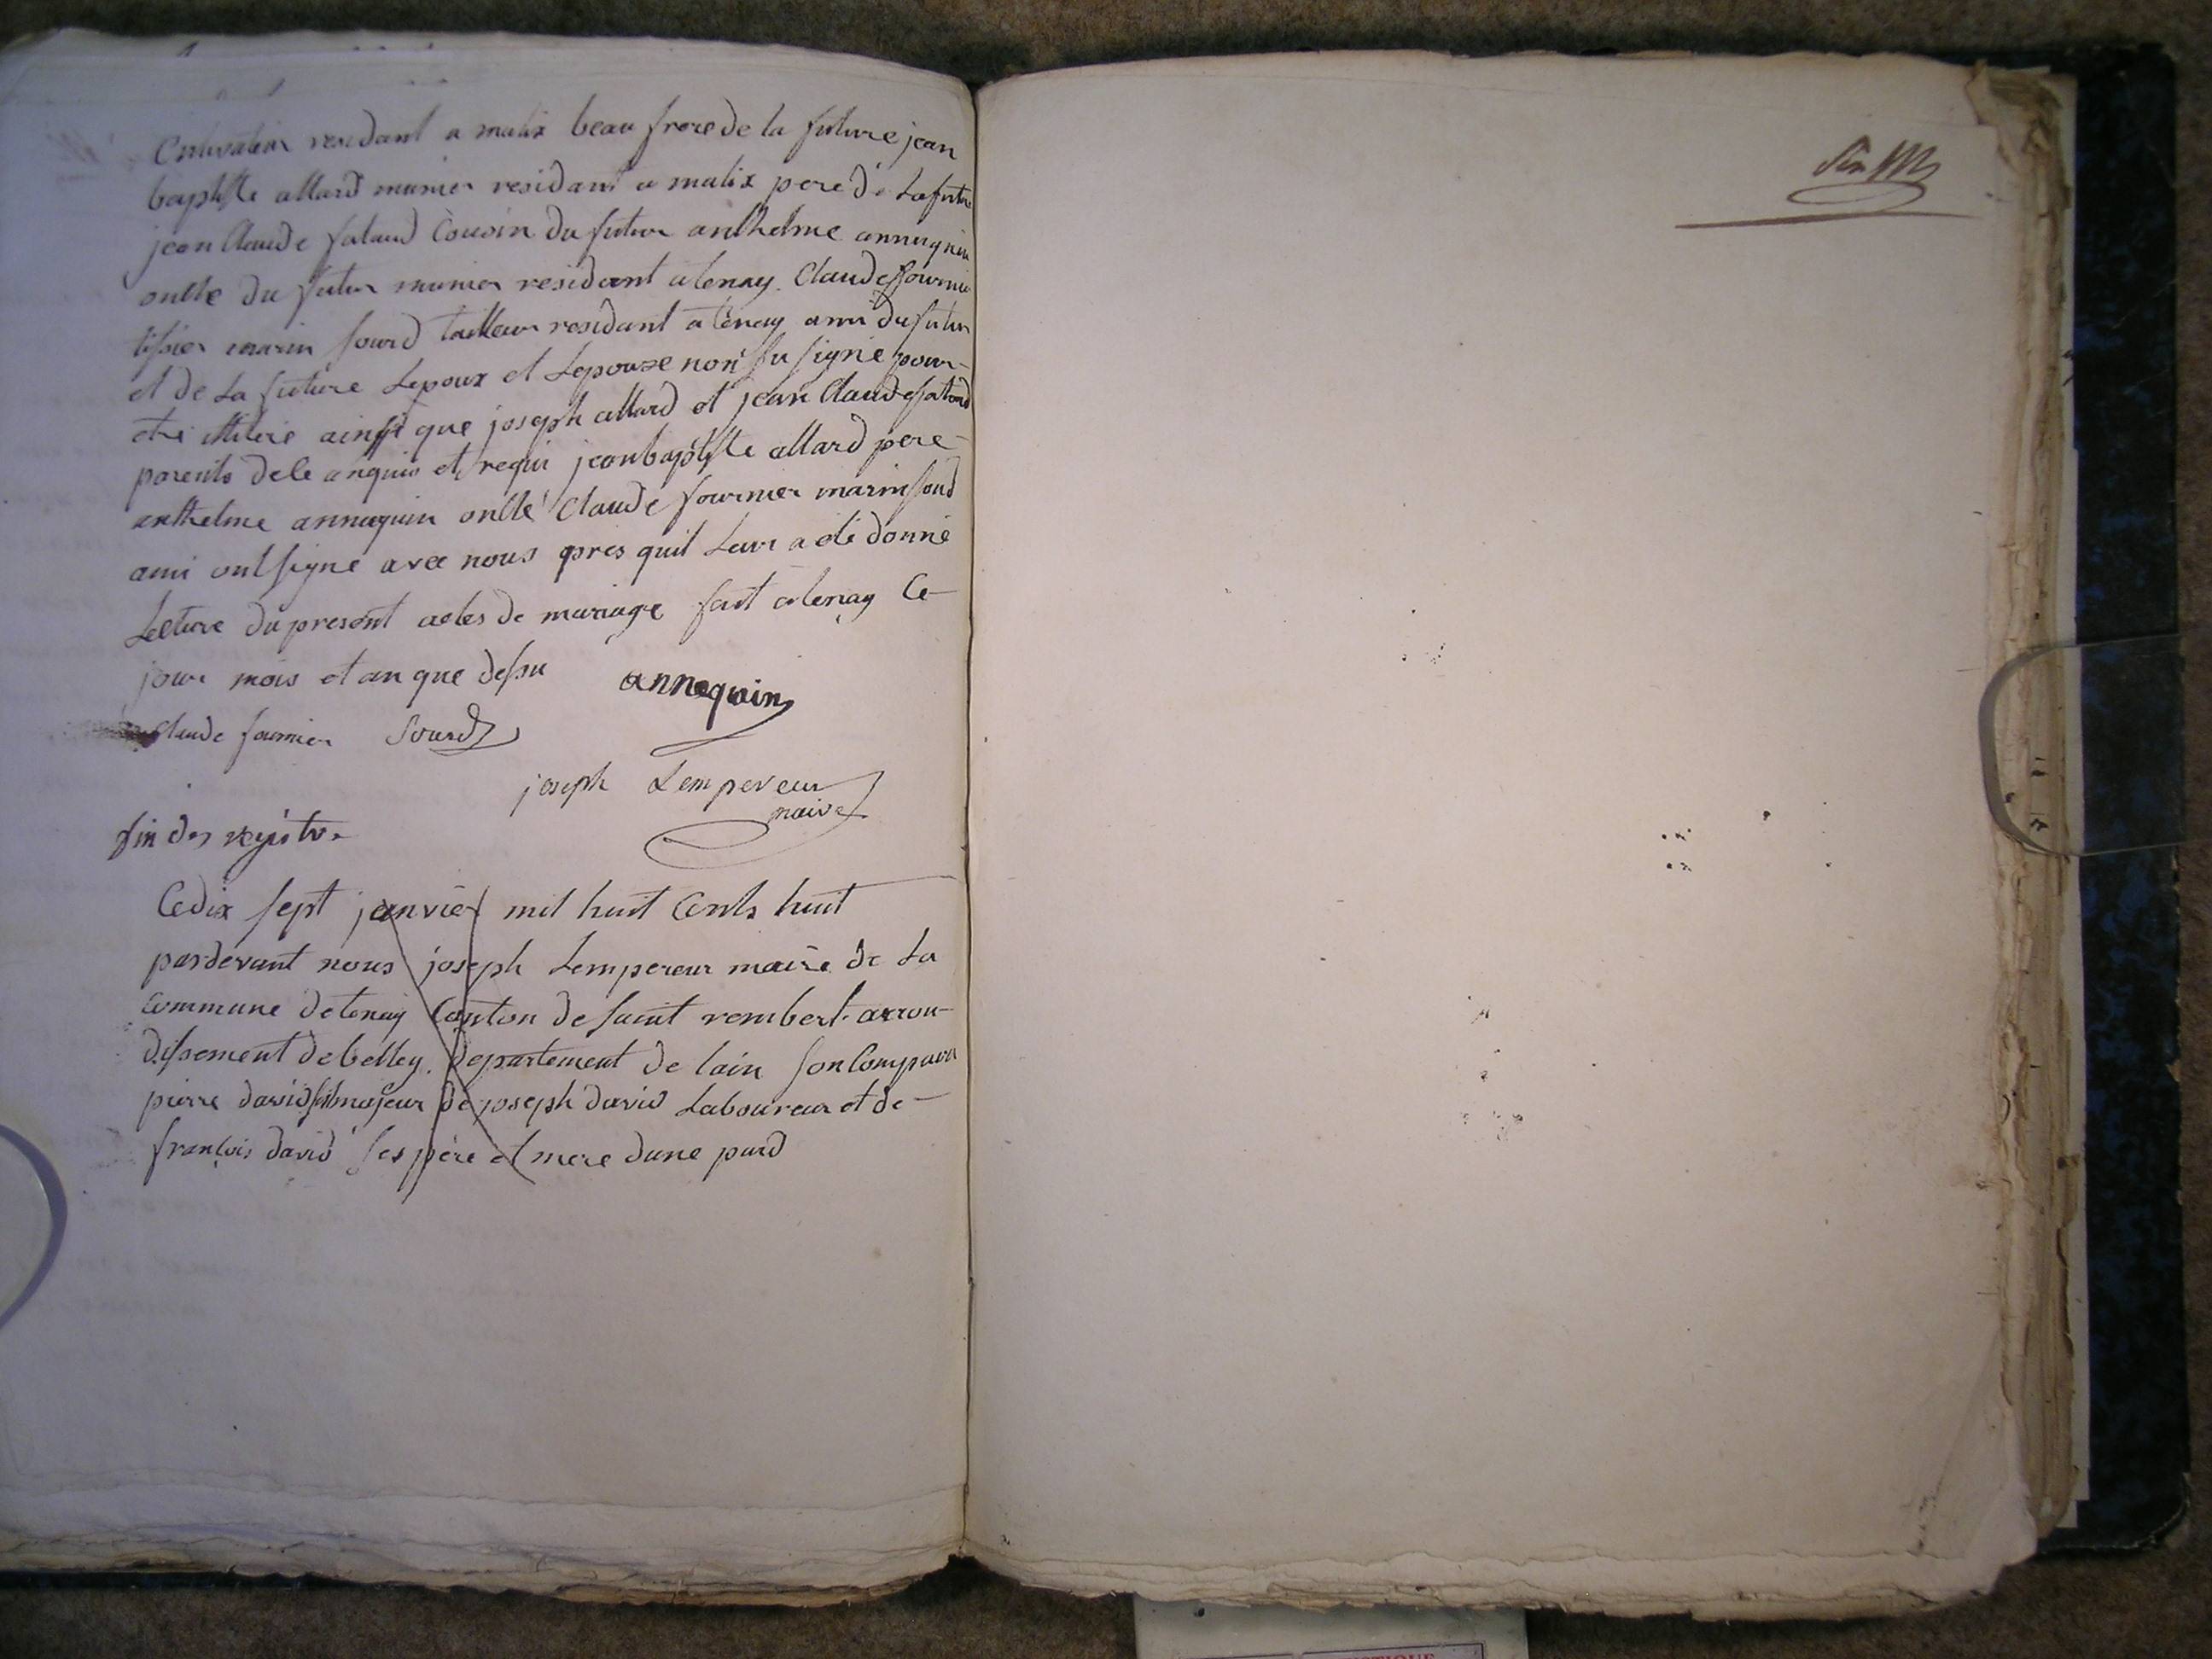 Cultivateur residant a malix beau frere de la future jean
baptiste allard munier residant a malix pere de La future
jean Claude falaud Cousin du futur anthelme annequin
oncle du futur munier residant a tenay. Claude fournier
tissier marin sourd tailleur residant a tenay ami du futur
et de La future Lepoux et Lepouse non su signé pour
etre illiteré ainsi que joseph allard et jean Claude falaud
parents de ce anquis et requi jean baptiste allard pere
anthelme annequin oncle Claude fournier marin sourd
ami ont signé avec nous apres quil Leur a eté donné
Lecture du present actes de mariage fait a tenay Ce
jour mois et an que dessu annequin
Claude fournier Sourd
joseph Lempereur
maire
fin des registre
Ce dix sept janvier mil huit Cents huit
pardevant nous joseph Lempereur maire de La
Commune de tenay Canton de saint rembert arron-
dissement de belley. departement de lain son Comparu
pierre david fils majeur de joseph david Laboureur et de
francois david ses père et mere dune pard